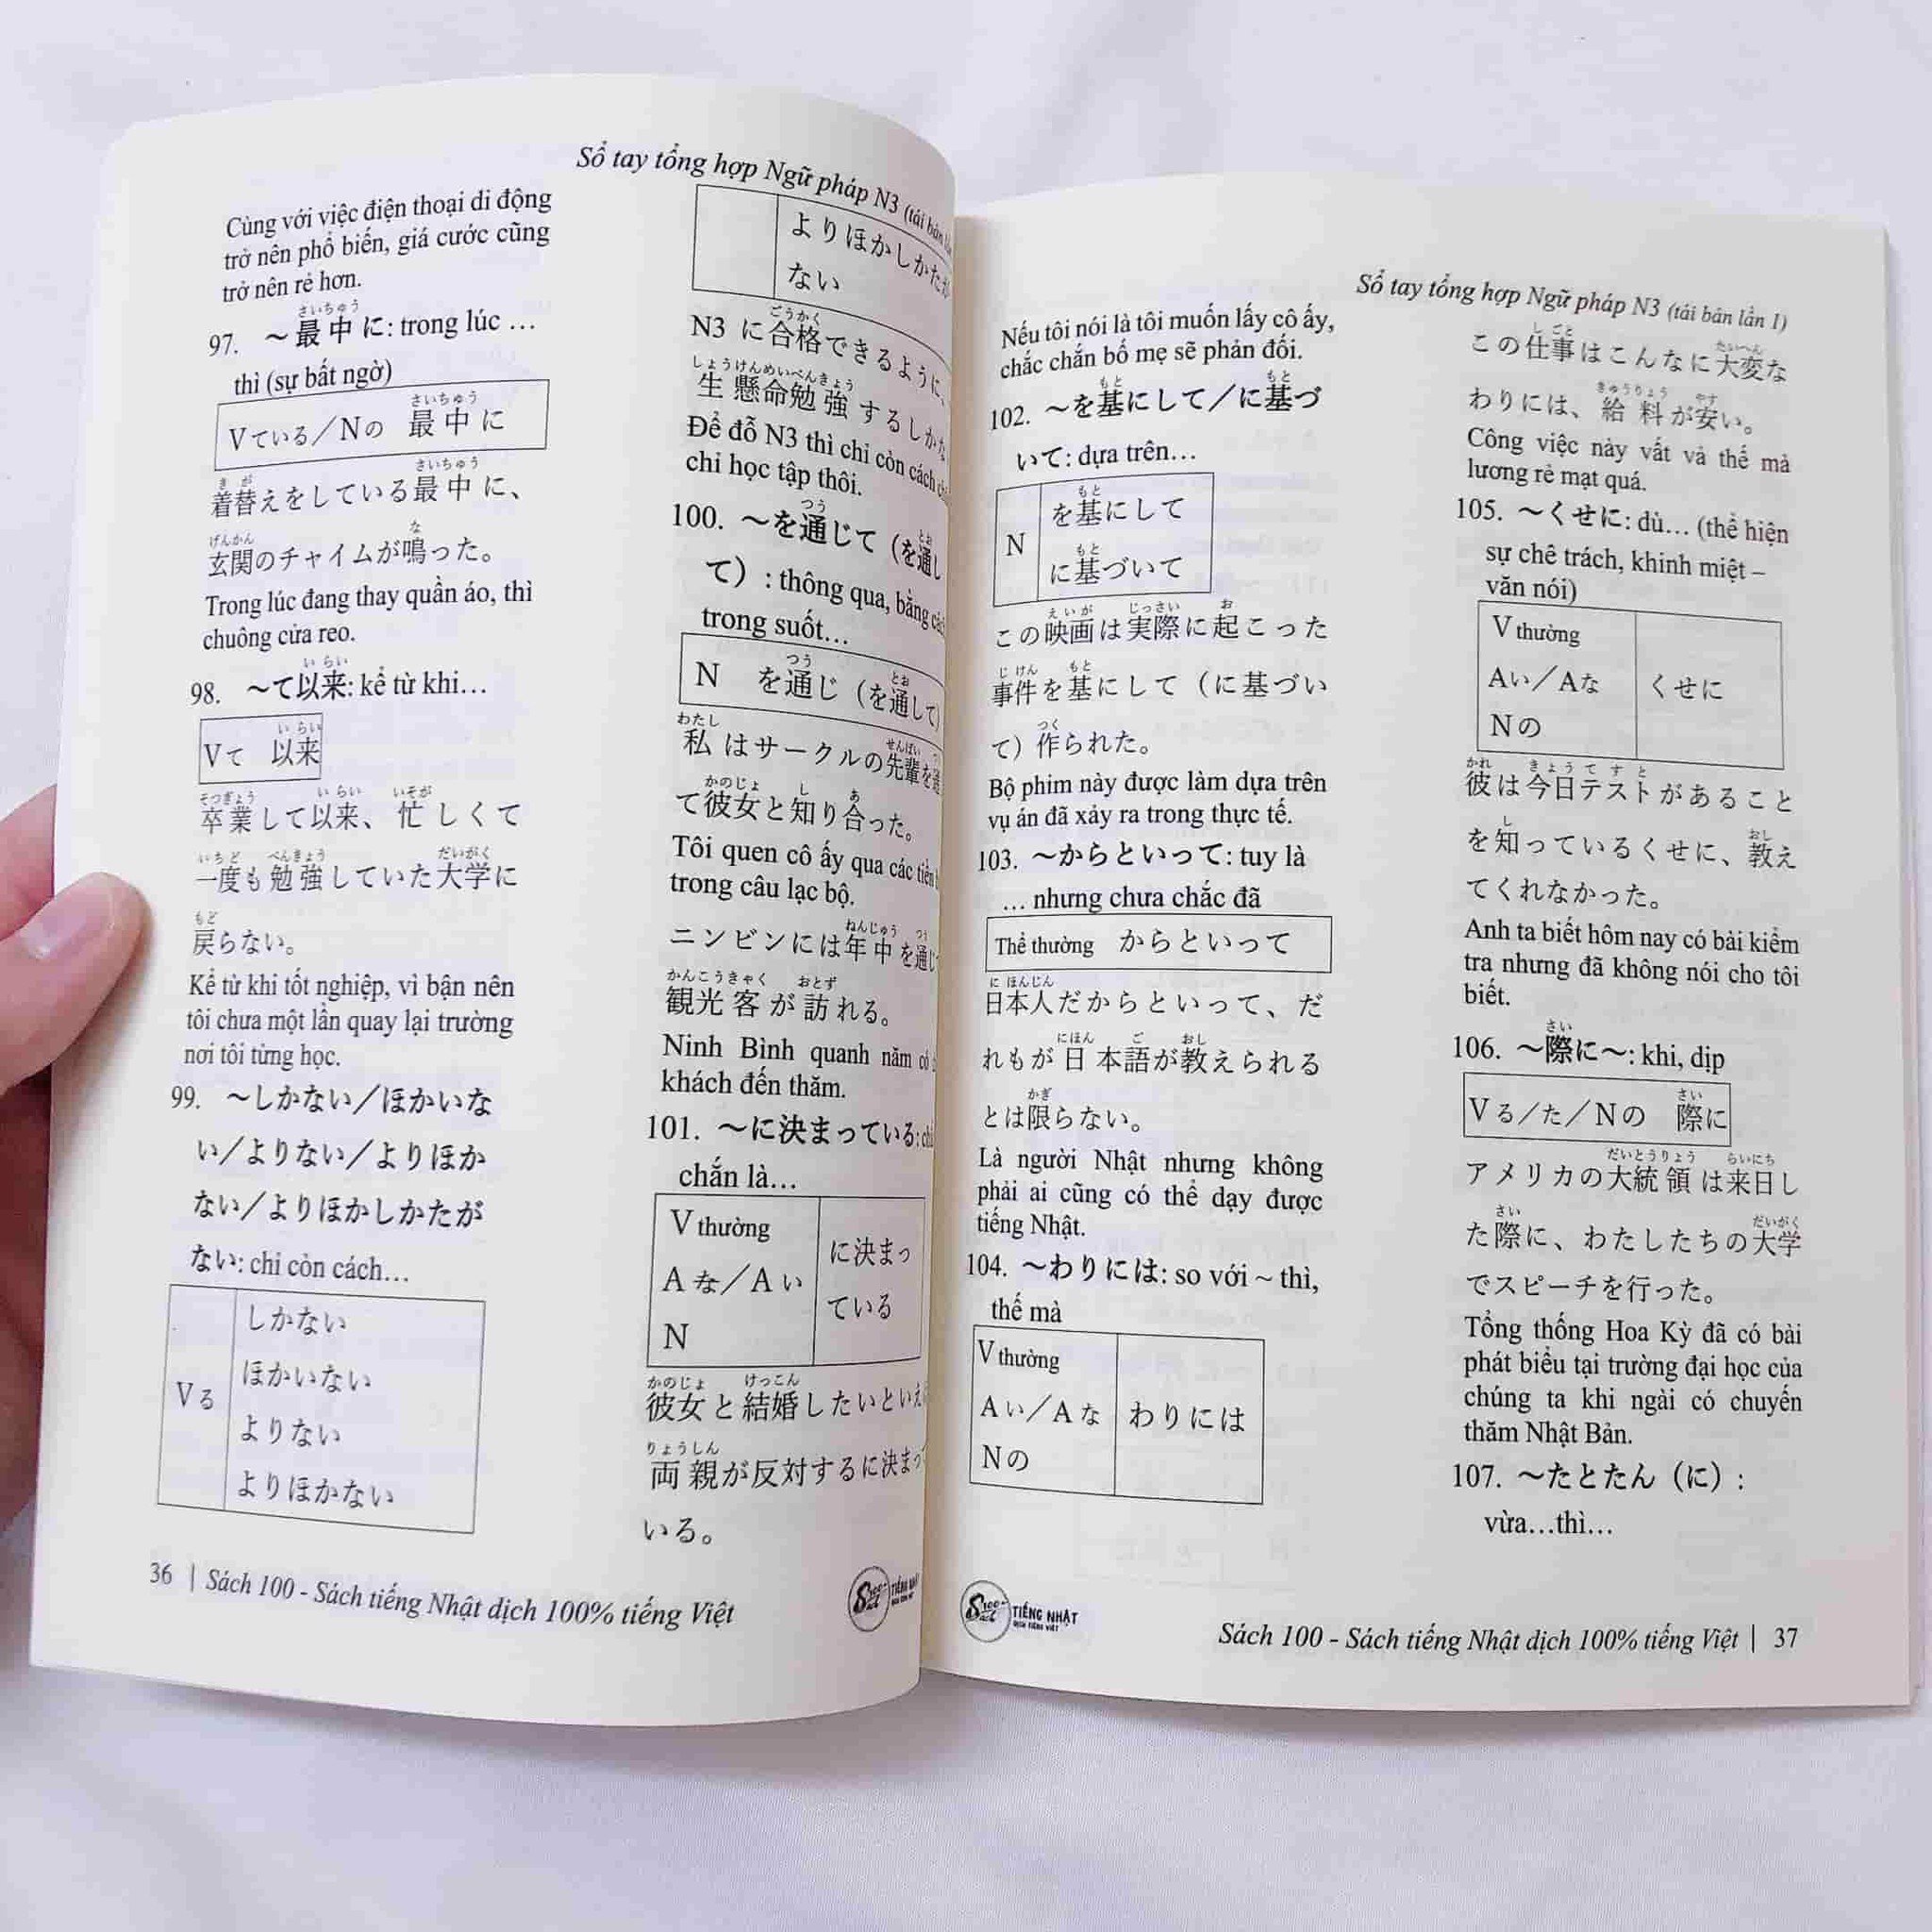 Sổ tay tổng hợp Ngữ pháp N3 (tái bản
Cùng với việc điện thoại di động
trở nên phổ biến, giá cước cũng
trở nên rẻ hơn.
さいちゅう
97. ～最中に: trong lúc …
thì (sự bất ngờ)
さいちゅう
Vている／Nの 最中に
き が さいちゅう
着替えをしている最中に、
げんかん な
玄関のチャイムが鳴った。
Trong lúc đang thay quần áo, thì
chuông cửa reo.
い らい
98. ～て以来: kể từ khi…
い らい
Vて 以来
そつぎょう い らい いそが
卒業して以来、忙しくて
いちど べんきょう だいがく
一度も勉強していた大学に
もど
戻らない。
Kể từ khi tốt nghiệp, vì bận nên
tôi chưa một lần quay lại trường
nơi tôi từng học.
99. ～しかない／ほかいな
い／よりない／よりほか
ない／よりほかしかたが
ない: chỉ còn cách…
Vる
しかない
ほかいない
よりない
よりほかない
よりほかしかたが
ない
ごうかく
N3 に合格できるように、
しょうけんめいべんきょう
生懸命勉強するしかな
Để đỗ N3 thì chỉ còn cách
chỉ học tập thôi.
つう とお
100. ～を通じて（を通し
て）: thông qua, bằng
trong suốt…
つう とお
N を通じ（を通して）
わたし せんぱい つ
私はサークルの先輩を通
かのじょ し あ
て彼女と知り合った。
Tôi quen cô ấy qua các tiền
trong câu lạc bộ.
ねんじゅう つう
ニンビンには年中を通じ
かんこうきゃく おとず
観光客が訪れる。
Ninh Bình quanh năm có
khách đến thăm.
101. ～に決まっている:
chắn là…
V thường
A な／A い
N
に決まっ
ている
かのじょ けっこん
彼女と結婚したいといえ
りょうしん
両親が反対するに決まっ
いる。
36 | Sách 100 - Sách tiếng Nhật dịch 100% tiếng Việt
Sổ tay tổng hợp Ngữ pháp N3 (tái bản lần 1)
Nếu tôi nói là tôi muốn lấy cô ấy,
chắc chắn bố mẹ sẽ phản đối.
もと もと
102. ～を基にして／に基づ
いて: dựa trên…
N
もと
を基にして
もと
に基づいて
えいが じっさい お
この映画は実際に起こった
じ けん もと
事件を基にして（に基づい
つく
て）作られた。
Bộ phim này được làm dựa trên
vụ án đã xảy ra trong thực tế.
103. ～からといって: tuy là
… nhưng chưa chắc đã
Thể thường からといって
に ほんじん
日本人だからといって、だ
にほん ご おし
れもが日本語が教えられる
かぎ
とは限らない。
Là người Nhật nhưng không
phải ai cũng có thể dạy được
tiếng Nhật.
104. ～わりには: so với ~ thì,
thế mà
V thường
A い／A な
N の
わりには
し ごと たいへん
この仕事はこんなに大変な
きゅうりょう やす
わりには、給料が安い。
Công việc này vất vả thế mà
lương rẻ mạt quá.
105. ～くせに: dù… (thể hiện
sự chê trách, khinh miệt –
văn nói)
V thường
A い／A な
N の
くせに
かれ きょう て す と
彼は今日テストがあること
し おし
を知っているくせに、教え
てくれなかった。
Anh ta biết hôm nay có bài kiểm
tra nhưng đã không nói cho tôi
biết.
さい
106. ～際に～: khi, dịp
さい
V る／た／N の 際に
だいとうりょう らいにち
アメリカの大統領は来日し
さい だいがく
た際に、わたしたちの大学
でスピーチを行った。
Tổng thống Hoa Kỳ đã có bài
phát biểu tại trường đại học của
chúng ta khi ngài có chuyến
thăm Nhật Bản.
107. ～たとたん（に）:
vừa…thì…
TIẾNG NHẬT
Sách 100 - Sách tiếng Nhật dịch 100% tiếng Việt | 37